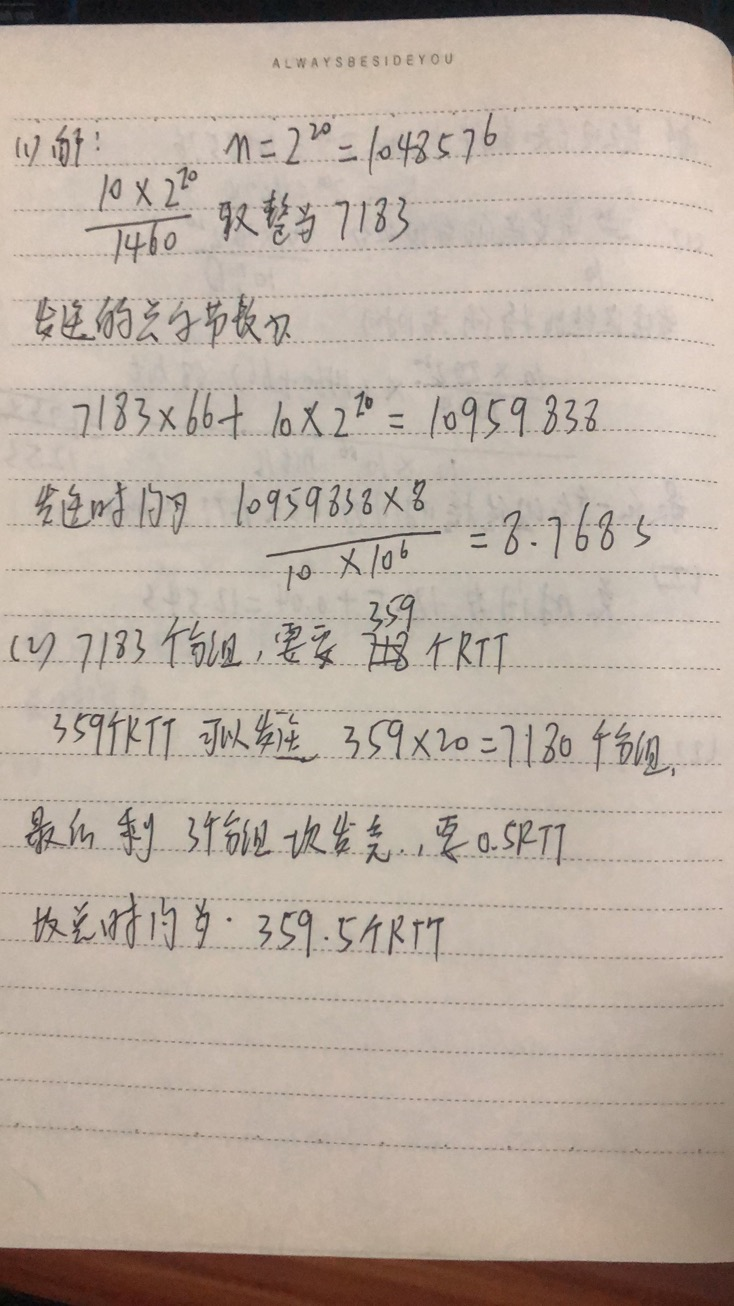 ALWAYSBESIDEYOU
(1) 解: n=2²⁰=1048576
10×2²⁰/1460 取整为 7183
发送的总字节数为
7183×66+ 10×2²⁰ = 10959838
发送时间为 10959838×8/10×10⁶ = 8.768s
(2) 7183个分组,需要 359 个RTT
359个RTT 可以发送 359×20=7180 个分组,
最后 剩 3个分组一次发完,要0.5RTT
故总时间为 359.5个RTT